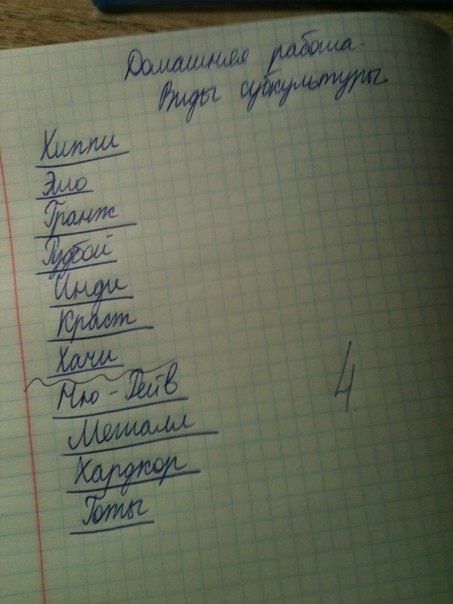 Домашняя работа.
Виды субкультуры
Хиппи
Эмо
Гранж
Рудбой
Инди
Краст
Хачи
Ню-Рейв
Металл
Хардкор
Готы
4